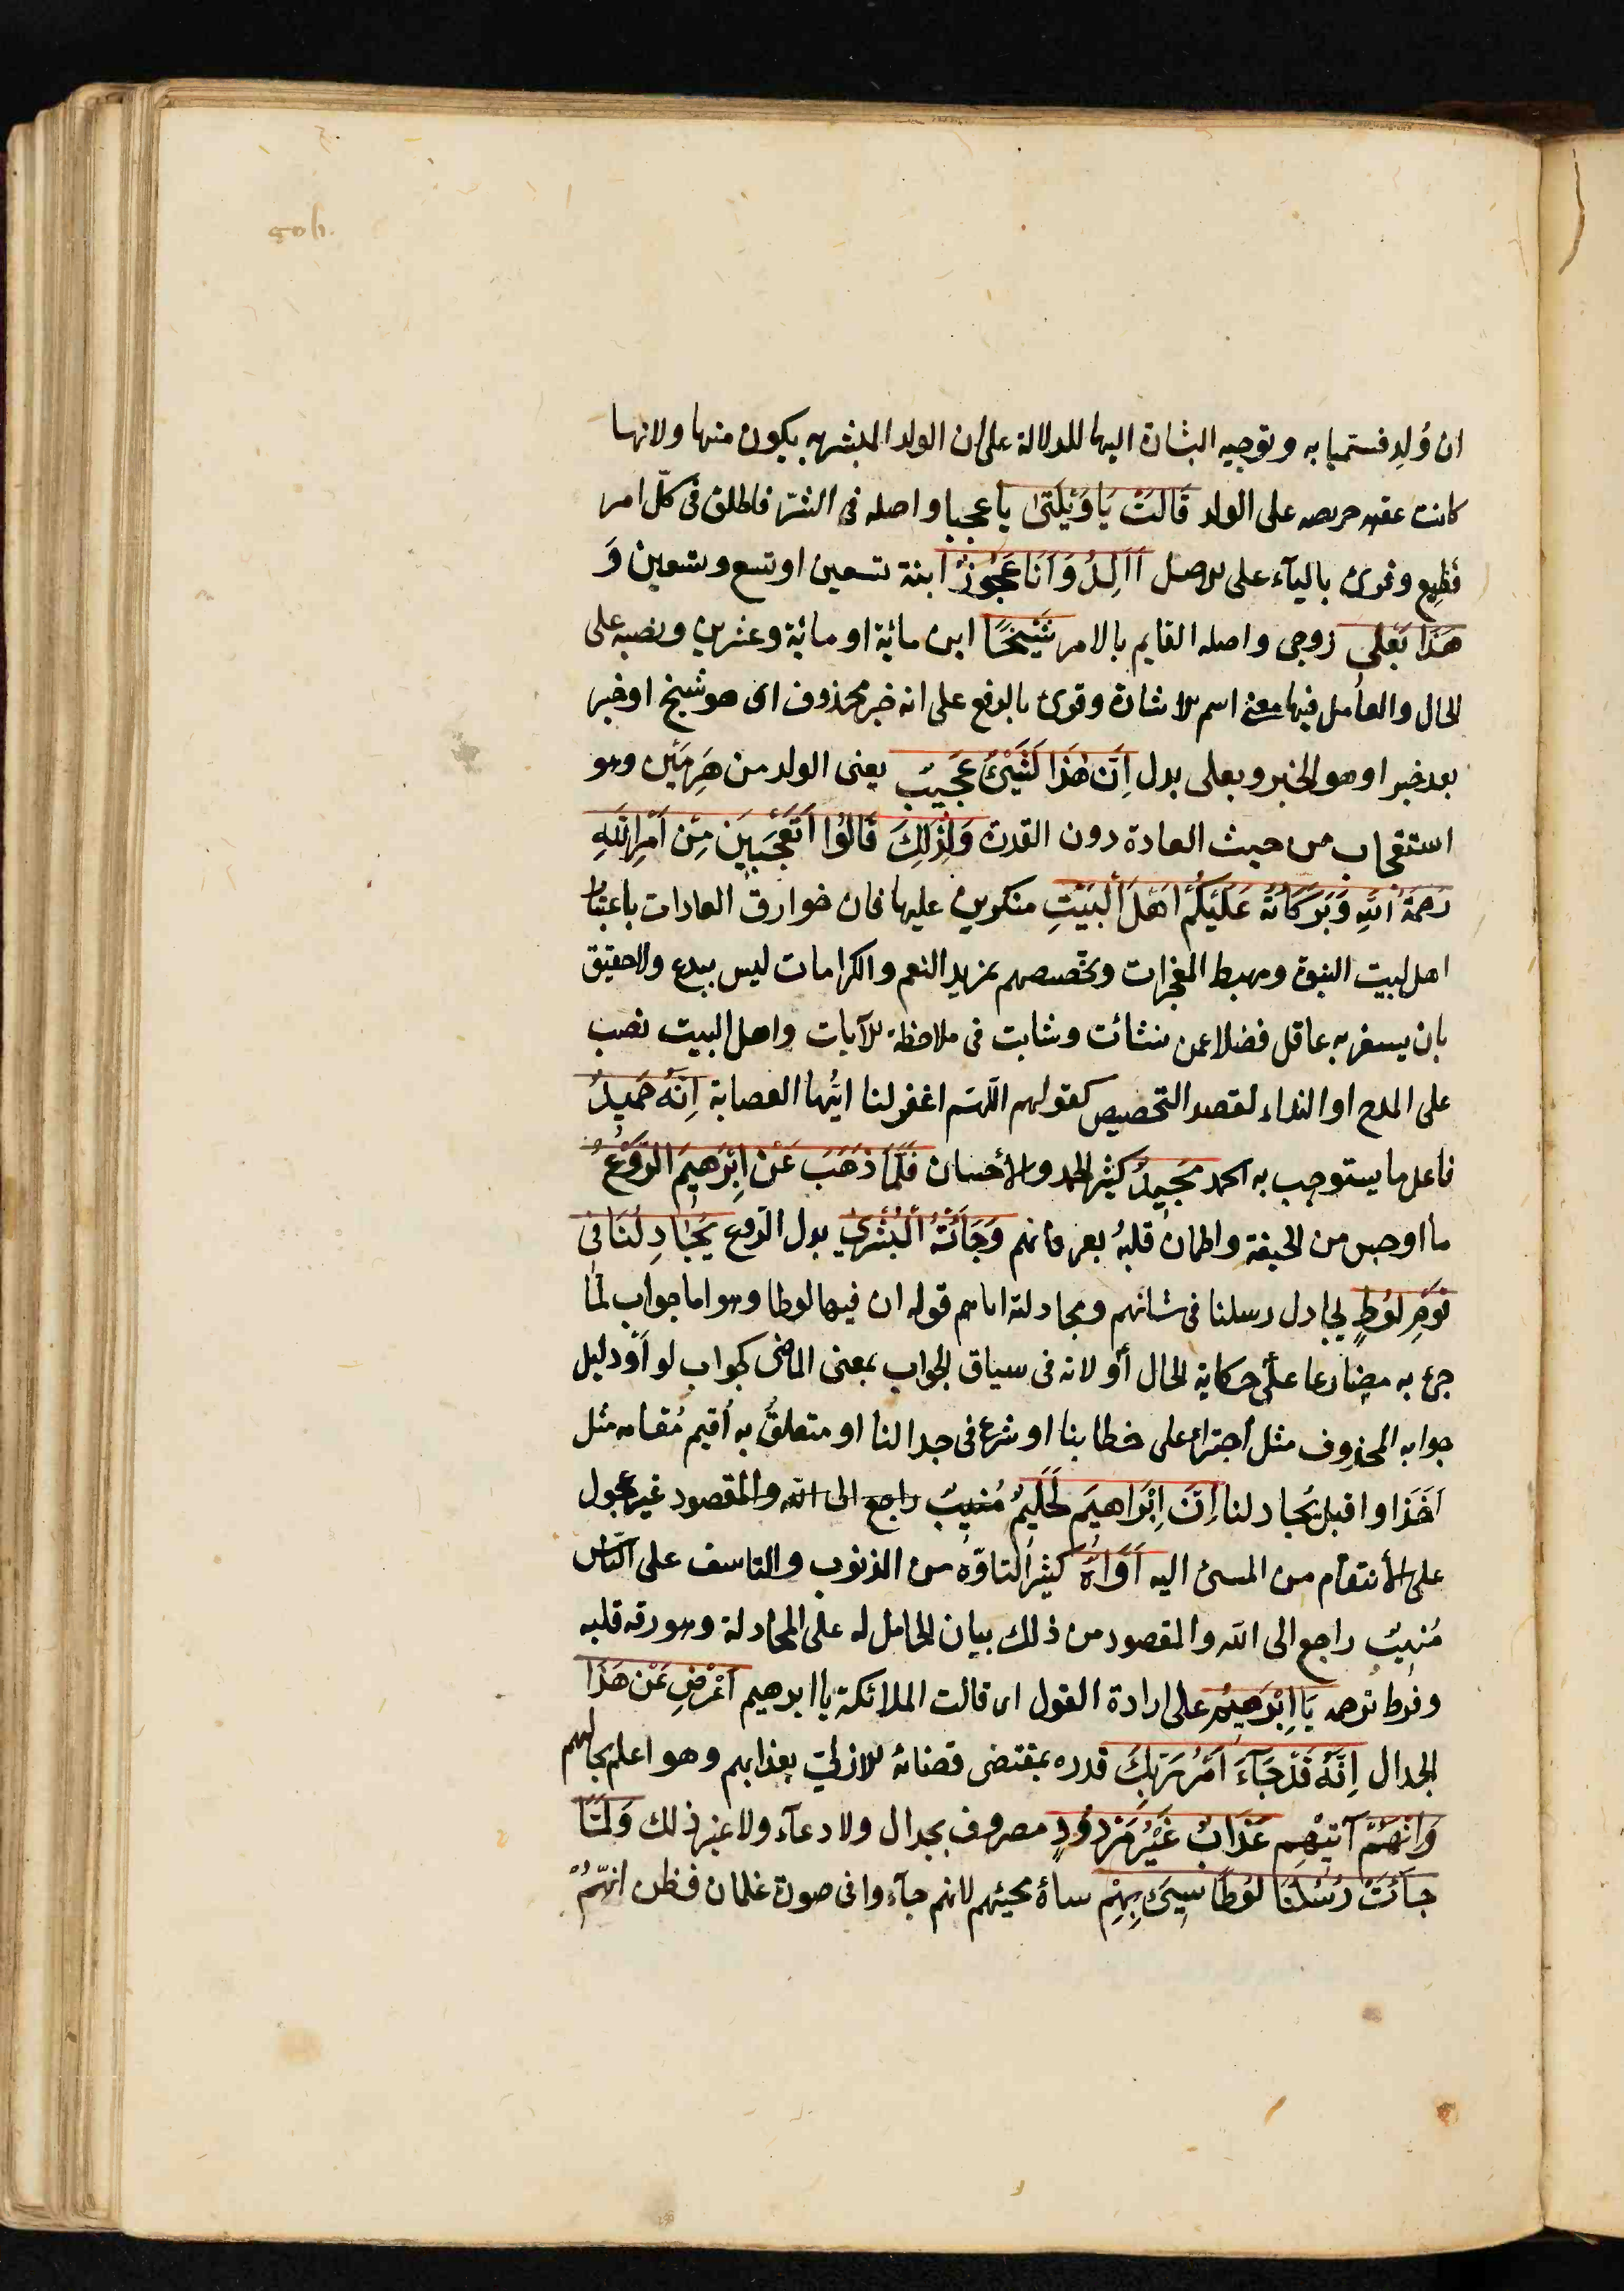 ان وُلِد فسميا به وتوجيه البشارة اليها للدلالة على ان الولد المبشر به يكون منها ولانها
كانت عقيمه حريصه على الولد قَالَتْ يَا وَيْلَتَىٰ يا عجبا واصله فى الشرّ فاطلق فى كلّ امر
فَظِيع وقرئ بالياء على الاصل أَأَلِدُ وَأَنَا عَجُوزٌ ابنة تسعين او تسع وتسعين وَ
هَذَا بَعْلِى زوجى واصله القايم بالامر شَيْخًا ابن مائة او مائة وعشرين ونصبه على
الحال والعامل فيها معنى اسم الاشارة وقرئ بالرفع على انه خبر محذوف اى هو شيخ او خبر
بعد خبر او هو الخبر وبعلى بدل اِنَّ هٰذَا لَشَيْئٌ عَجِيبٌ يعنى الولد من هَرِمَيْن وهو
استعجاب من حيث العادة دون القدرة وَلِذٰلِكَ قَالُوا أَتَعْجَبِينَ مِنْ أَمْرِ اللهِ
رَحْمَةُ اللهِ وَبَرَكَاتُهُ عَلَيْكُمْ اَهْلَ الْبَيْتِ منكرين عليها فان خوارق العادات باعتبار
اهل بيت النبوة ومهبط المعجزات وتخصيصهم بمزيد النعم والكرامات ليس ببدع ولا حقيق
بان يستغربه عاقل فضلا عمن نشائت وشابت فى ملاحظة الآيات واهل البيت نصب
على المدح او النداء لقصد التخصيص كقولهم اللّهم اغفر لنا ايتُها العصابة اِنَّهُ حَمِيدٌ
فاعل ما يستوجب به الحمد مَجِيدٌ كثير الحمد والأحسان فَلَمَّا ذَهَبَ عَنْ اِبْرَهِيمَ الرَّوْعُ
ما اوجس من الخيفة واطمان قلبهُ بعرفانهم وَجَائَتْهُ الْبُشْرَىٰ بدل الرّوع يُجَادِلُنَا فِى
قَوْمِ لُوطٍ يجادل رسلنا فى شانهم ومجادلته اياهم قوله ان فيها لوطا وهو اما جواب لمّا
جئ به مضارعا على حكاية الحال أو لانه فى سياق الجواب بمعنى الماضى كجواب لو أو دليل
جوابه المحذوف مثل اجترأ على خطابنا او شرع فى جدالنا او متعلقٌ به أقيم مُقامه مثل
اَخَذَ او اقبل يُجادلنا اِنَّ اِبْرَاهِيمَ لَحَلِيمٌ مُنيبٌ راجع الى الله والمقصود غير عجول
على الأنتقام من المسئ اليه اَوَّاهٌ كثير التاوّه من الذنوب والتاسف على النّاس
مُنيبٌ راجع الى الله والمقصود من ذلك بيان الحامل له على المجادلة وهو رقة قلبه
وفرط ترحمه يَا اِبْرَهِيمُ على ارادة القول اى قالت الملائكة يا ابرهيم اَعْرِضْ عَنْ هَذَا
الجدال اِنَّهُ قَدْ جَآءَ اَمْرُ رَبِّكَ قدره بمقتضى قضائه الازليّ بعذابهم وهو اعلم بحالهم
وَاِنَّهُمْ آتِيهِم عَذَابٌ غَيْرُ مَرْدُودٍ مصروف بجدال ولا دعآء ولا غير ذلك وَلَمَّا
جَائَتْ رُسُلُنَا لُوطًا سِيئَ بِهِمْ ساءهُ مجيئهم لانهم جآءوا فى صورة غلمان فظن انّهُمْ